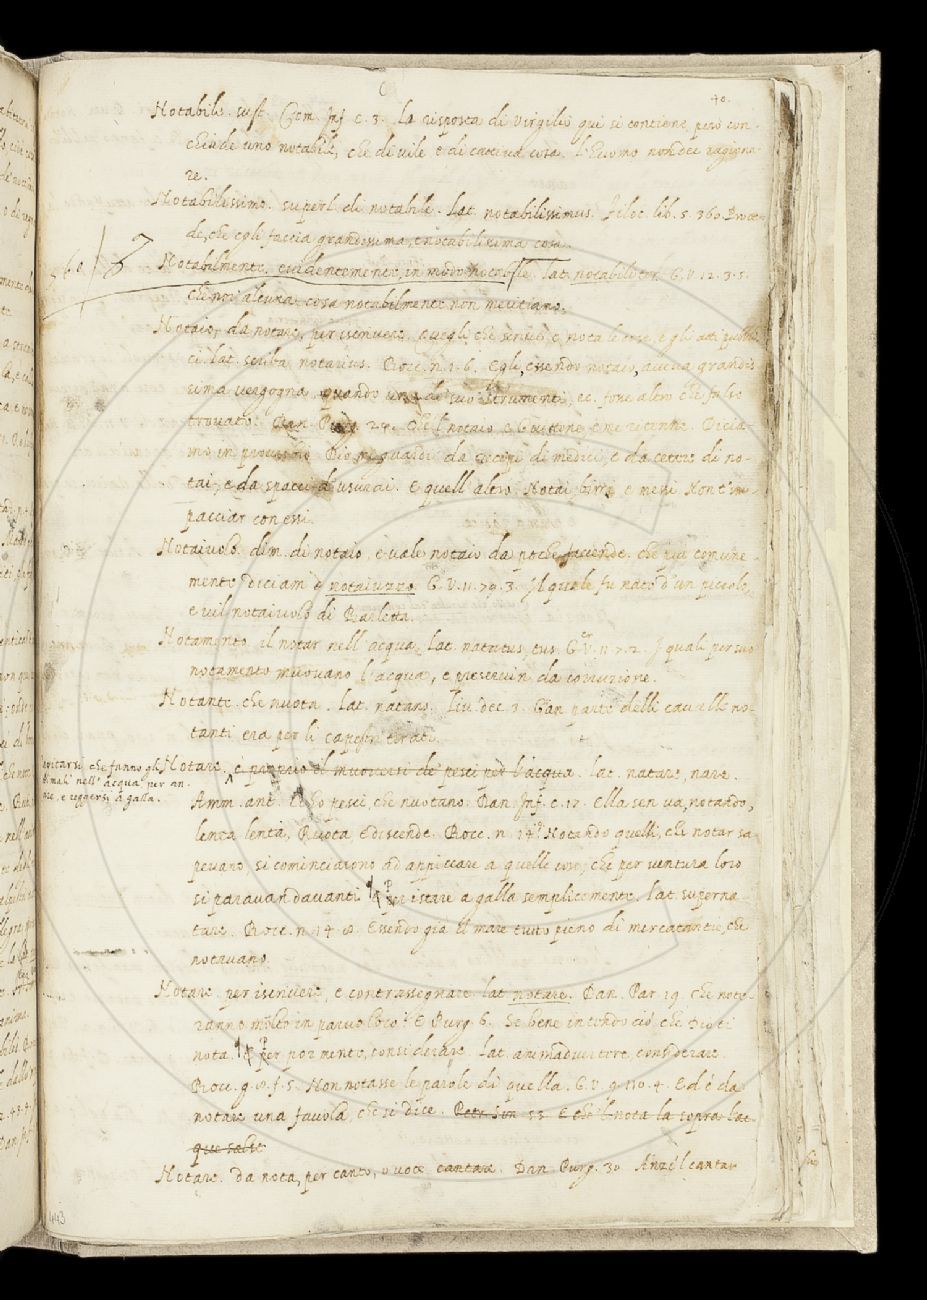 40.
Notabile. sust. Com. Inf. c. 3. la risposta di virgilio qui si contiene, però con-
chiude uno notabile, che di vile e di cattiva cosa l'huomo non dee ragiona-
re.
Notabilissimo. superl. di notabile. lat. notabilissimus. Filoc. lib. 5. 360.
de, che egli faccia grandissima, e notabilissima cosa.
Notabilmente. evidentemente, in modo notabile. lat. notabiliter. G. V. 12. 3. 5.
che noi alcuna cosa notabilmente non mentiamo.
Notaio, da notare, per iscrivere, quegli che scrive, e nota le cose, e gli atti publi-
ci. lat. scriba, notarius. Bocc. n. 1. 6. Egli essendo notaio, aveva grandis-
sima vergogna, quando uno de' suo' strumenti, ec. fosse altro che falso
trovato. Dan. Purg. 24. Che 'l notaio, e Guittone, e me ritenne. Dicia-
mo in proverbio Dio mi guardi da recipe di medici, e da cetere di no-
tai, e da spacci d'usurai. e quell'altro. Notai, birri, e messi Non t'im-
pacciar con essi.
Notaiuolo. dim. di notaio, e vale notaio da poche faccende. che più comune-
mente diciamo notaiuzzo. G. V. 11. 79. 3. Il quale fu nato d'un piccolo,
e vil notaiuolo di Barletta.
Notamento. il notar nell'acqua. lat. natatus, tus. Cr. V. 11. 7. 2. I quali per suo
notamento muovano l'acqua, e preservin da corruzione.
Notante. che nuota. lat. natans. Liv. dec. 3. Gran parte delli cavalli no-
tanti era per li capestri tirati.
che fanno gli
animali nell'acqua per an-
are, e reggersi a galla.
Notare. e proprio il muoversi de' pesci per l'acqua. lat. natare, nare.
Amm. ant. pesci, che nuotano. Dan. Inf. c. 17. Ella sen va, notando,
lenta lenta, Ruota, e discende. Bocc. n. 14. Notando quelli, che notar sa-
pevano, si cominciarono ad appiccare a quelle cose, che per ventura loro
si paravan davanti. ¶ per istare a galla semplicemente. lat. superna-
tare. Bocc. n. 14. 8. Essendo già il mare tutto pieno di mercatantie, che
notavano.
Notare. per iscrivere, e contrassegnare. lat. notare. Dan. Par. 19. che note-
ranno molto in parvo loco. E Purg. 6. Se bene intendo ciò che Dio ti
nota. ¶ per por mente, considerare. lat. animadvertere, considerare.
Bocc. g. 8. f. 5. Non notasse le parole di quella. G. V. 9. 110. 4. Ed è da
notare una favola, che si dice. Petr. Son. 53. E che 'l nota la sopra l'ac-
que salse
Notare. da nota, per canto, o voce cantare. Dan. Purg. 30. Anzi 'l cantar
443